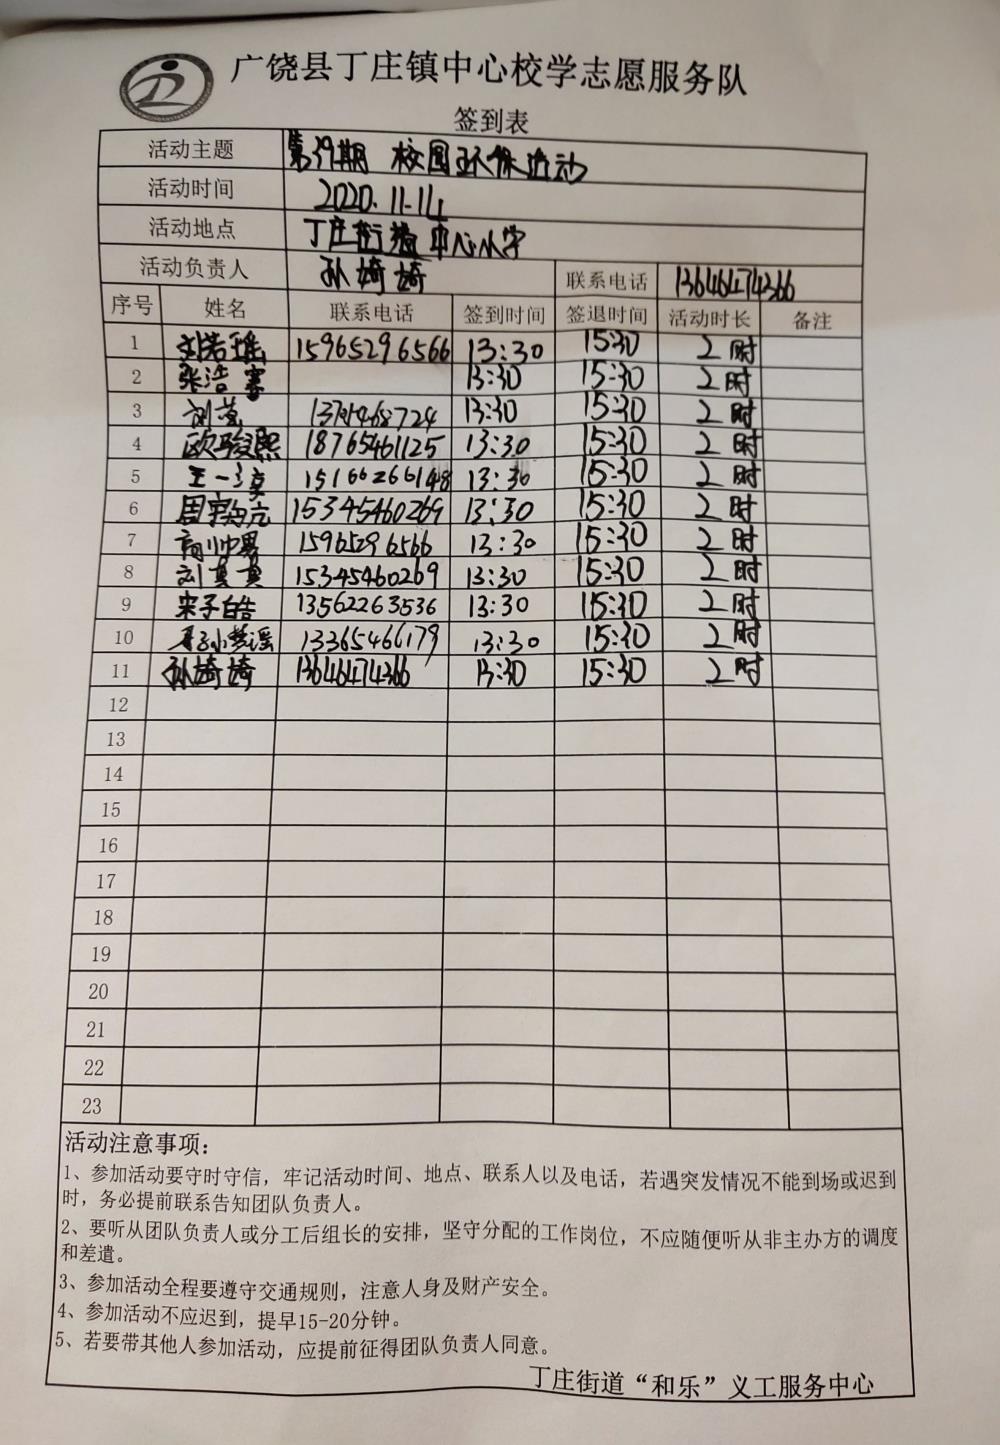 广饶县丁庄镇中心校学志愿服务队
签到表
活动主题 第39期 校园环保活动
活动时间 2020.11.14
活动地点 丁庄街道中心小学
活动负责人 孙婍婍 联系电话 13646474366
序号 姓名 联系电话 签到时间 签退时间 活动时长 备注
1 刘若瑶 15965296566 13:30 15:30 2时
2 张浩 13:30 15:30 2时
3 刘 13:30 15:30 2时
4 欧骏熙 18765461125 13:30 15:30 2时
5 王一 15166266148 13:30 15:30 2时
6 周 15345460269 13:30 15:30 2时
7 帅男 15965296566 13:30 15:30 2时
8 刘真真 15345460269 13:30 15:30 2时
9 宋子皓 13562263536 13:30 15:30 2时
10 13365466179 13:30 15:30 2时
11 孙婍婍 13646474366 13:30 15:30 2时
12
13
14
15
16
17
18
19
20
21
22
23
活动注意事项：
1、参加活动要守时守信，牢记活动时间、地点、联系人以及电话，若遇突发情况不能到场或迟到
时，务必提前联系告知团队负责人。
2、要听从团队负责人或分工后组长的安排，坚守分配的工作岗位，不应随便听从非主办方的调度
和差遣。
3、参加活动全程要遵守交通规则，注意人身及财产安全。
4、参加活动不应迟到，提早15-20分钟。
5、若要带其他人参加活动，应提前征得团队负责人同意。
丁庄街道“和乐”义工服务中心